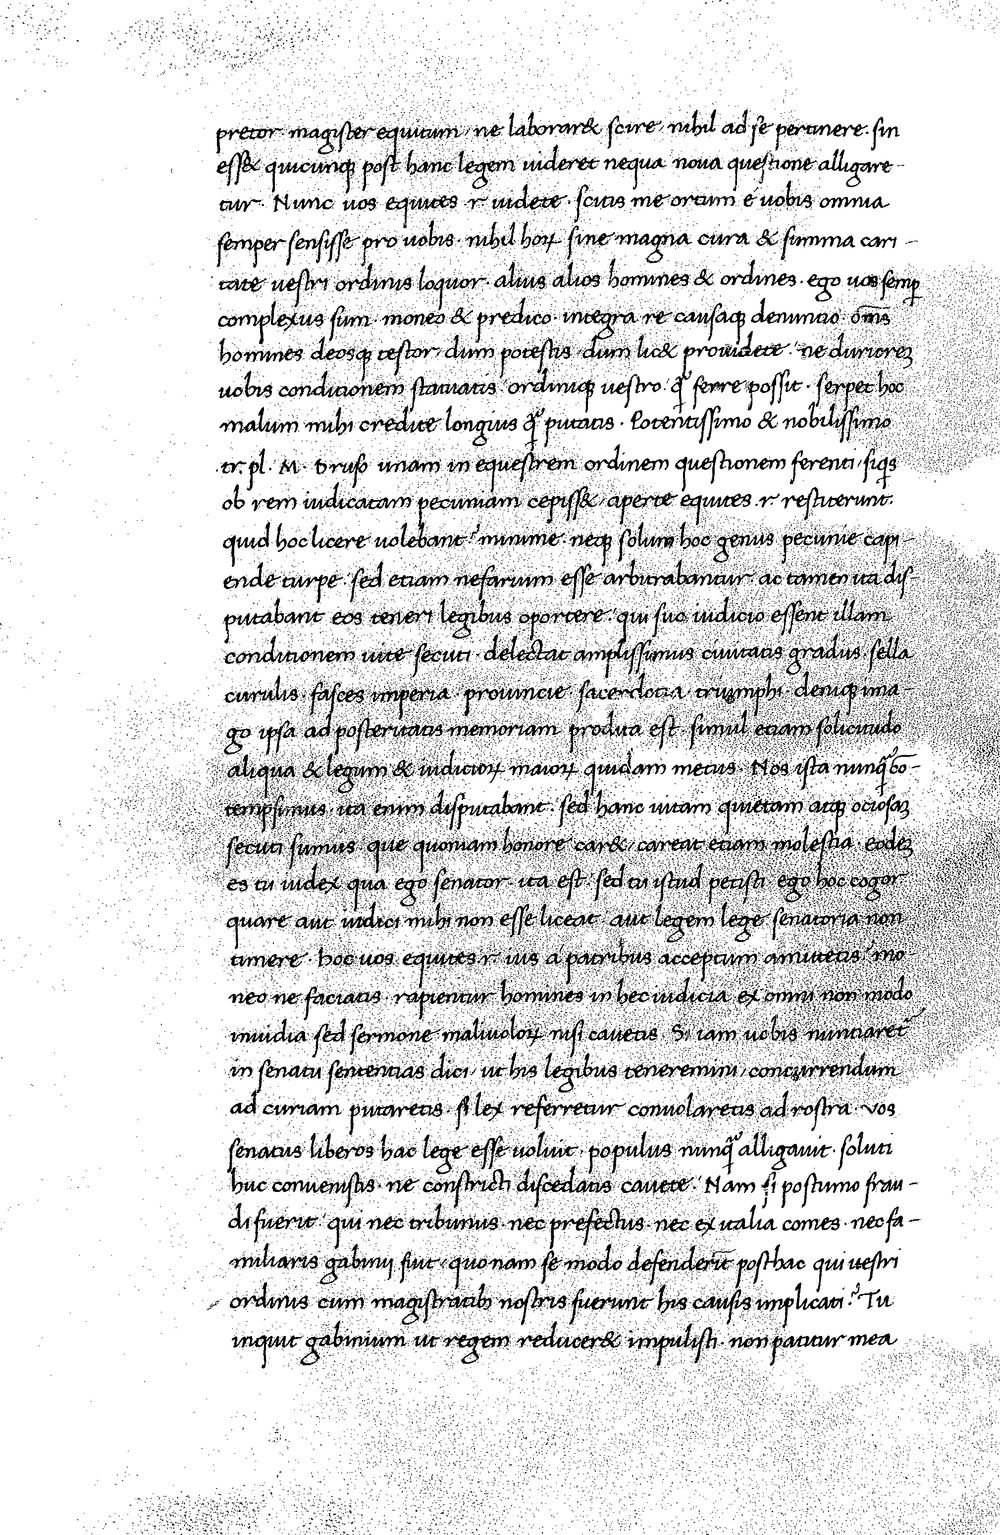 pretor magister equitum, ne laborar& scire nihil ad se pertinere. sin
ess& quicunq; post hanc legem uideret nequa noua questione alligare-
tur. Nunc uos equites .r. uidete. scitis me ortum e uobis omnia
semper sensisse pro uobis. nihil hoꝝ sine magna cura & summa cari-
tate uestri ordinis loquor. alius alios homines & ordines. ego uos semꝑ
complexus sum. moneo & predico. integra re causaq; denuntio. om̄s
homines deosq; testor, dum potestis, dum lic& prouidete. ne duriorez
uobis conditionem statuatis ordiniq; uestro. q̃ ferre possit. serpet hoc
malum mihi credite longius q̃ putatis. Potentissimo & nobilissimo
tr. pl. M. Druso unam in equestrem ordinem questionem ferenti, siq̇s
ob rem iudicatam pecuniam cepiss&, aperte equites .r. restiterunt.
quid hoc licere uolebant? minime. neq; solum hoc genus pecunie capi-
ende turpe. sed etiam nefarium esse arbitrabantur ac tamen ita dis-
putabant eos teneri legibus oportere. qui suo iudicio essent illam
conditionem uite secuti. delectat amplissimus ciuitatis gradus. sella
curulis. fasces imperia. prouincie. sacerdotia. triumphi. deniq; ima-
go ipsa ad posteritatis memoriam prodita est. simul etiam solicitudo
aliqua & legum & iudicioꝝ maioꝝ quidam metus. Nos ista nunq̃ cō-
tempsimus. ita enim disputabant. sed hanc uitam quietam atq; ociosaz
secuti sumus. que quoniam honore car&, careat etiam molestia. eodez
es tu iudex qua ego senator. ita est. sed tu istud petisti. ego hoc cogor
quare aut iudici mihi non esse liceat. aut legem lege senatoria non
timere. hoc uos equites .r. ius a patribus acceptum amittetis? mo-
neo ne faciatis. rapientur homines in hec iudicia ex omni non modo
inuidia sed sermone maliuoloꝝ nisi cauetis. Si iam uobis nuntiaret᷑
in senatu sententias dici, ut his legibus teneremini, concurrendum
ad curiam putaretis. si lex referretur conuolaretis ad rostra. uos
senatus liberos hac lege esse uoluit. populus nunq̃ alligauit. soluti
huc conuenistis. ne constricti discedatis cauete. Nam si postumo frau-
di fuerit. qui nec tribunus. nec prefectus. nec ex italia comes. nec fa-
miliaris gabinij fuit, quonam se modo defenderīt posthac qui uestri
ordinis cum magistratib; nostris fuerunt his causis implicati? Tu
inquit gabinium ut regem reducer& impulisti. non patitur mea